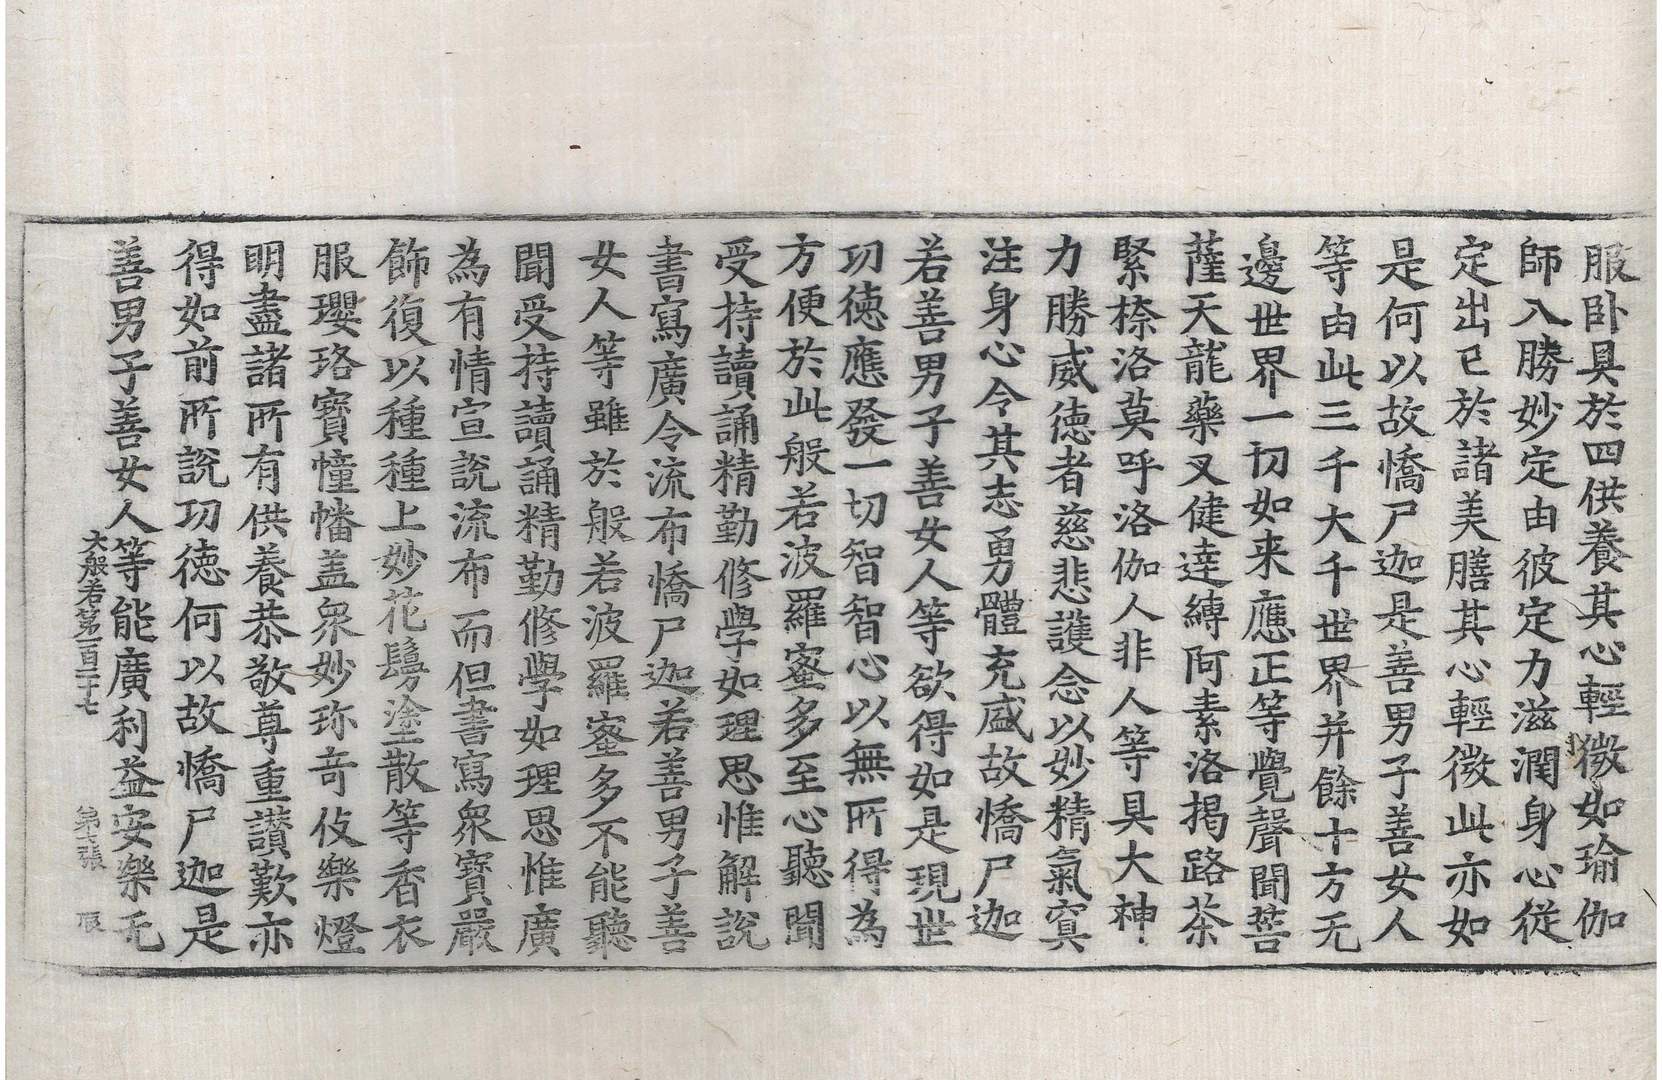 服卧具於四供養其心輕微如瑜伽
師入勝妙定由彼定力滋潤身心從
定出已於諸美膳其心輕微此亦如
是何以故憍尸迦是善男子善女人
等由此三千大千世界并餘十方无
邊世界一切如来應正等覺聲聞菩
薩天龍藥叉健達縛阿素洛揭路茶
緊捺洛莫呼洛伽人非人等具大神
力勝威德者慈悲護念以妙精氣冥
注身心令其志勇體充盛故憍尸迦
若善男子善女人等欲得如是現世
功德應發一切智智心以無所得為
方便於此般若波羅蜜多至心聽聞
受持讀誦精勤修學如理思惟解說
書寫廣令流布憍尸迦若善男子善
女人等雖於般若波羅蜜多不能聽
聞受持讀誦精勤修學如理思惟廣
為有情宣說流布而但書寫衆寶嚴
飾復以種種上妙花鬘塗散等香衣
服瓔珞寶幢幡盖衆妙珎奇伎樂燈
明盡諸所有供養恭敬尊重讚歎亦
得如前所說功德何以故憍尸迦是
善男子善女人等能廣利益安樂无
大般若第一百二十七 第七張 辰